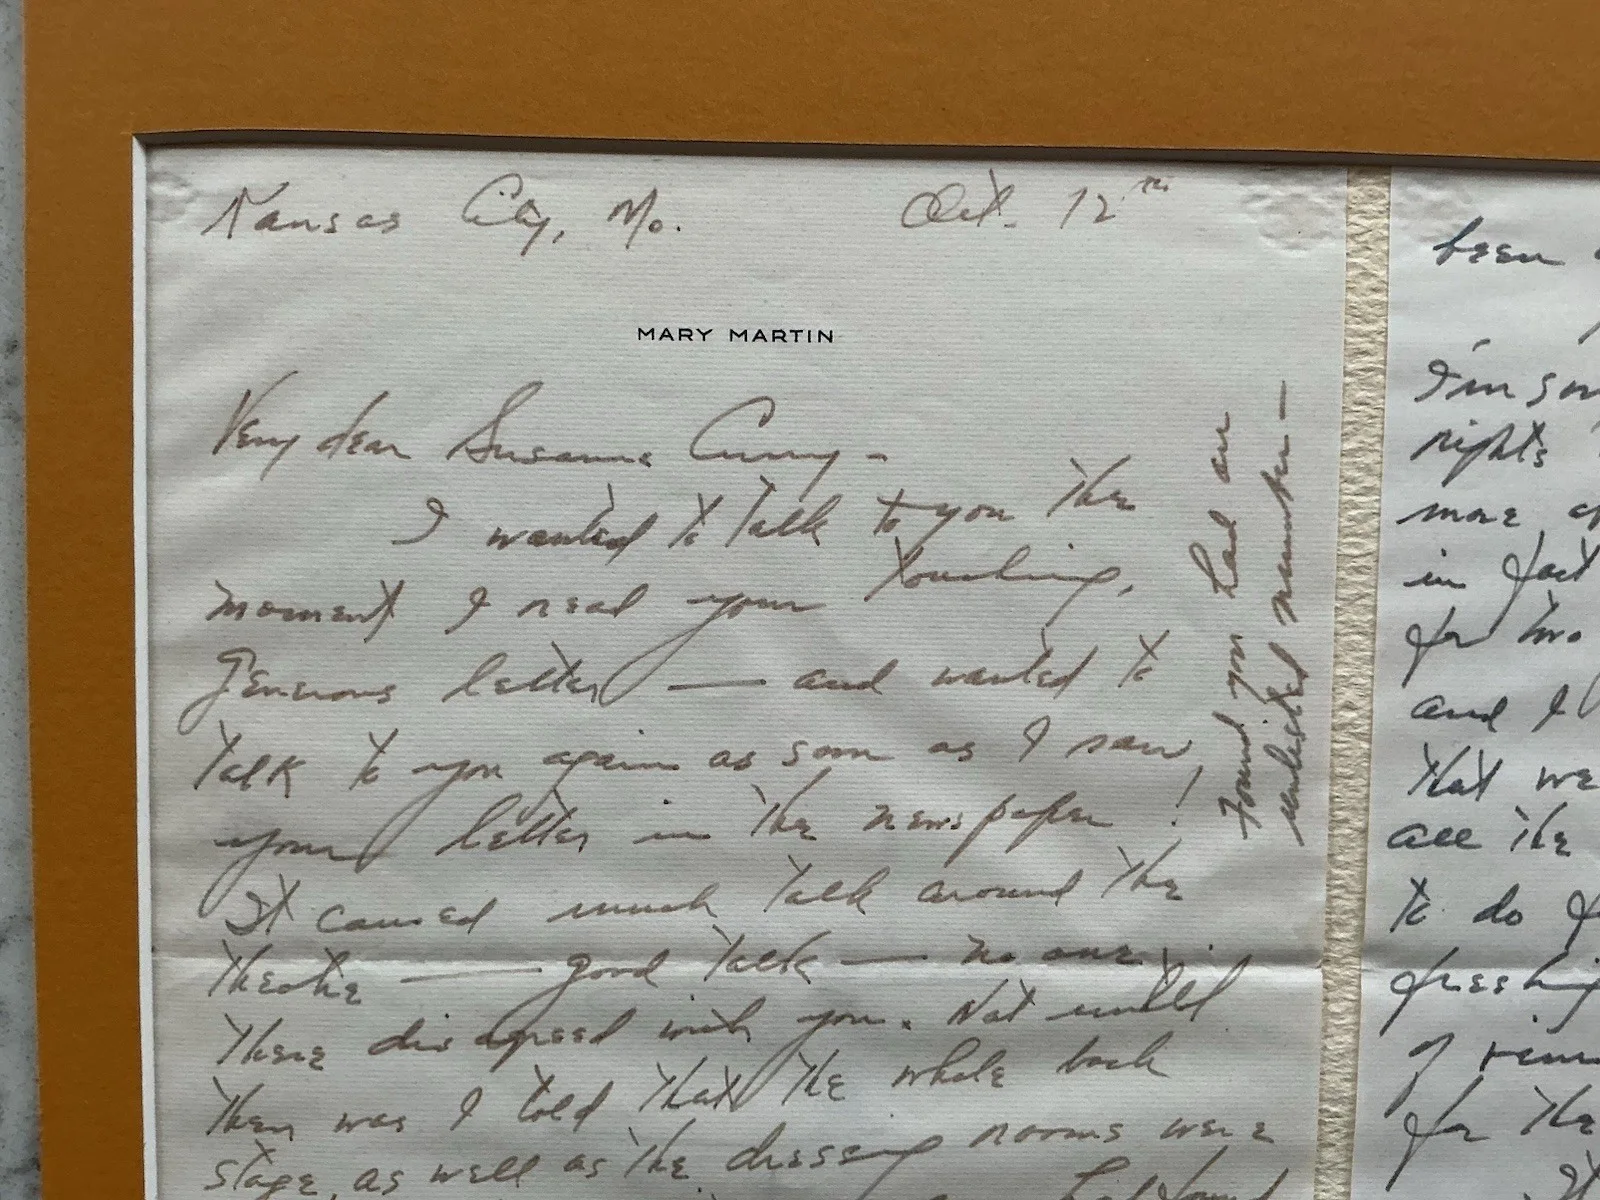 Kansas City, Mo. Oct. 12th
MARY MARTIN
Very dear Susanne Curry -
I wanted to talk to you the
moment I read your touching,
generous letter — and wanted to
talk to you again as soon as I saw
your letter in the newspaper!
It caused much talk around the
theatre — good talk — no one
there disagreed with you. Not until
then was I told that the whole back
stage, as well as the dressing rooms were
found
Found you had an
unlisted number -
been
I'm
rights
more
in fact
for two
and I
that we
all the
to do
for the